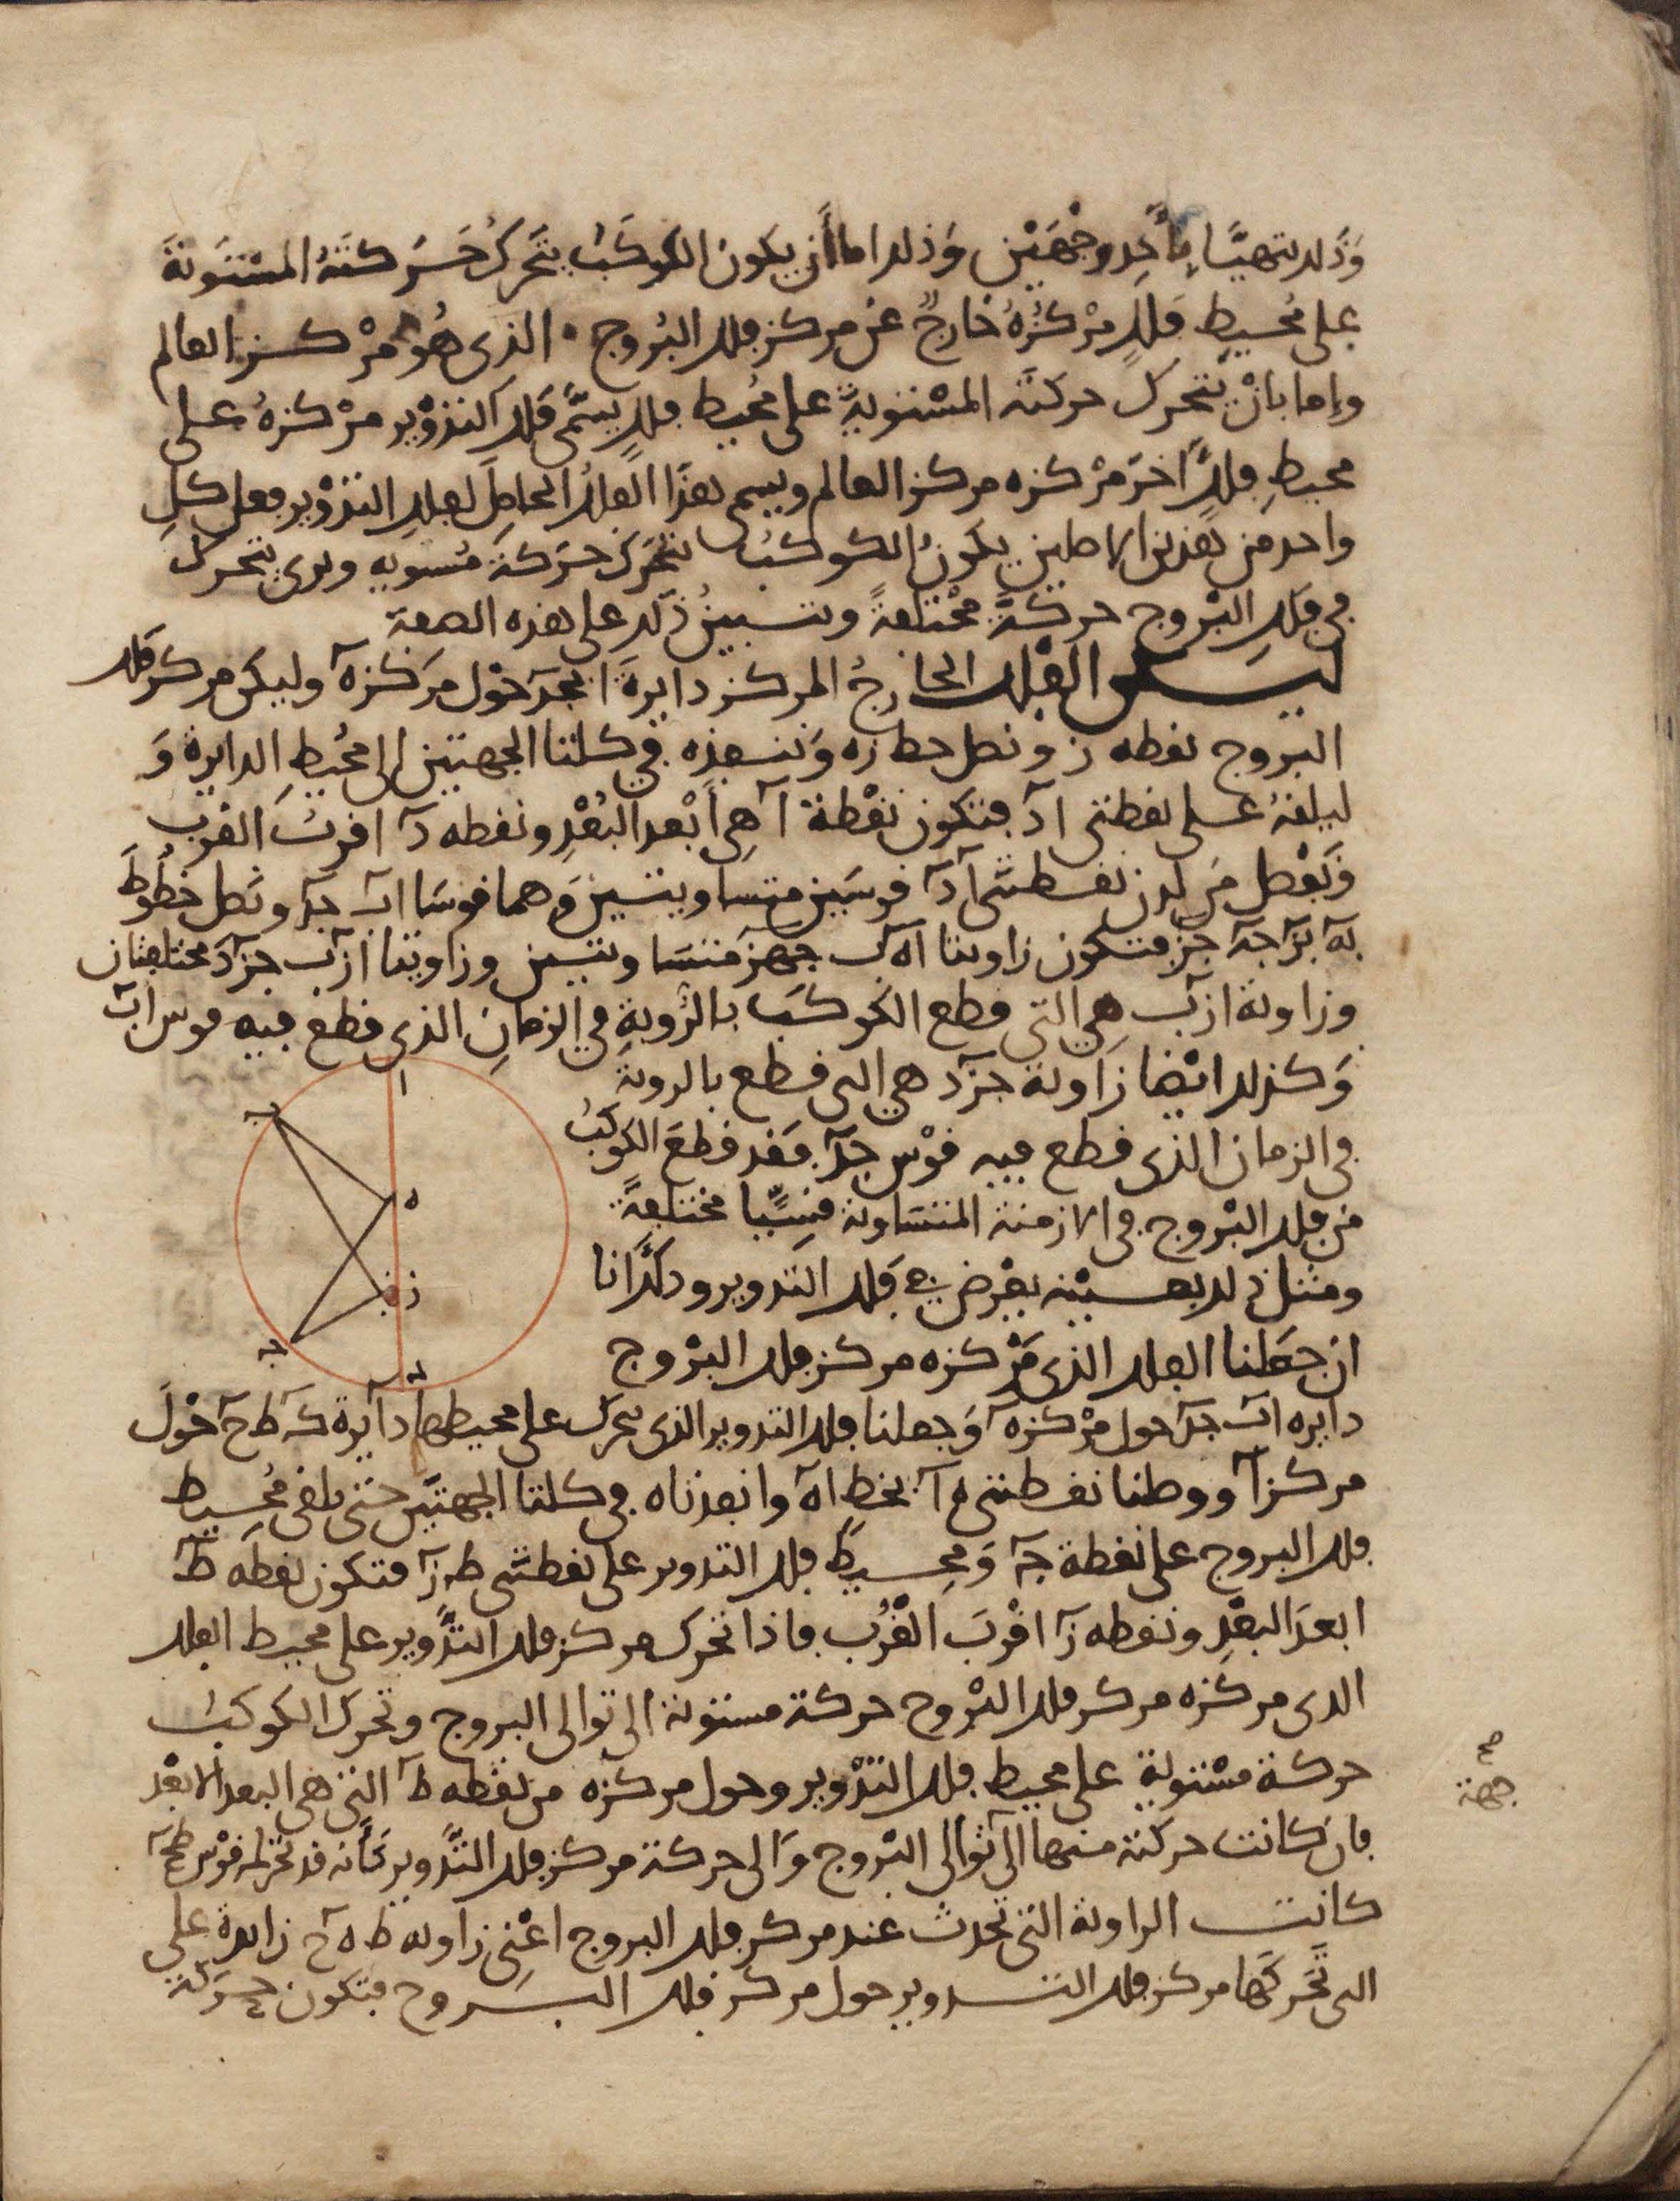 وَذَلك يتهيَّا بأَحِد وجْهَيْن وَذلك اما أَن يكون الكوكَبُ يتَحَركُ حَرَكتَهُ المسْتَوَيةَ
على مُحيطِ فَلكٍ مرْكزُهُ خَارجٌ عَن مركز فلك البُروج الذى هُو مرْكز العالم
وإما بانْ يتحرك حركتَه المسْتويةَ على مُحيط فلكٍ يسَمَّى فَلك التدْوْير مرْكزهُ على
محيطِ فلكٍ اخرَ مرْكزه مركز العالم ويسمى هذا الفلكُ الحامِلَ لفلك التدْوْير فعلى كلِ
واحد من هذين الاصلين يكونُ الكوكبُ يتحَرك حَركةً مُستويه ويرى يتحرك
فى فلك البْروج حركةً مُختلفةً وتبيينُ ذلك على هذه الصفة
ليكن الفلك الخارجُ المركز دايرةَ ابجد حَوْل مرَكزه وليكن مركز فلك
البروج نقطه ز ونصل خط زه وَننفذه فى كلتا الجهتين الى محُيطِ الدايرة وَ
ليلقهُ على نقطتى اد فتكون نقْطة ا هِى أَبْعد البُعْدِ ونقطه د اقربَ القرْب
وَنَفْصل من لدن نقطتَى اد قوسَين متساويتين وَهما قوسَا اب جد ونَصل خطُوطَ
به بز جه جز فتكون زاويتا اهب جهز متسَاويتين وزاويتا ازب جزد مختلفتان
وزاوية ازب هِى التى قطع الكوكبَ بالرُويةِ فى الزمانِ الذى قطع فيه قوس اب
وَكذلك ايْضا زَاوية جزد هى التى قطع بالروية
فى الزمان الذى قطع فيه قوْس جد فقد قطعَ الكوكبُ
من فلك البْروج فى الازمنة المتسَاوية قسِيًّا مختلفةً
ومثل ذلك بعينه يعْرض فى فَلك التدوير وذلك انا
ان جعَلنا الفلك الذى مَرْكزه مركز فلك البْروج
دايره اب جد حول مرْكزه وَجعلنا فلك التدوير الذى يتحرك على محيطها دايرة كه طح حَوْلَ
مركز ا ووصلنا نقطتى ه ا بخط اه وانفذناه فى كلتا الجهتين حتى يلقى مُحيط
فلك البروج على نقطة جه وَمحيط فلك التدوير على نقطتَى ط ز فتكون نقطه ط
ابعدَ البعْدِ ونقطه ز اقْربَ القُرب فاذا تحرك مركز فلك التدْوير على محيط الفلك
الذى مركزه مركز فلك البْروج حركة مستوية الى توالى البروج وتحرك الكوكبُ
حركة مسْتوية على محيط فلك التدْوير وحول مركزه من نقطه ط التى هى البعد الابعْد
فان كانت حركته منها الى توالى البْروج وَالى حركة مركز فلك التدْوير كَأنه قد تحرك قوْس طح
كانت الزاوية التى تحدث عند مركز فلك البروج اعْنِى زاويه ط ه ح زايدة على
التى تَحَركَها مركز فلك التدوير حول مركز فلك البروج فتكون حَركة
صح
جهة
ا
ب
ه
ز
ج
د